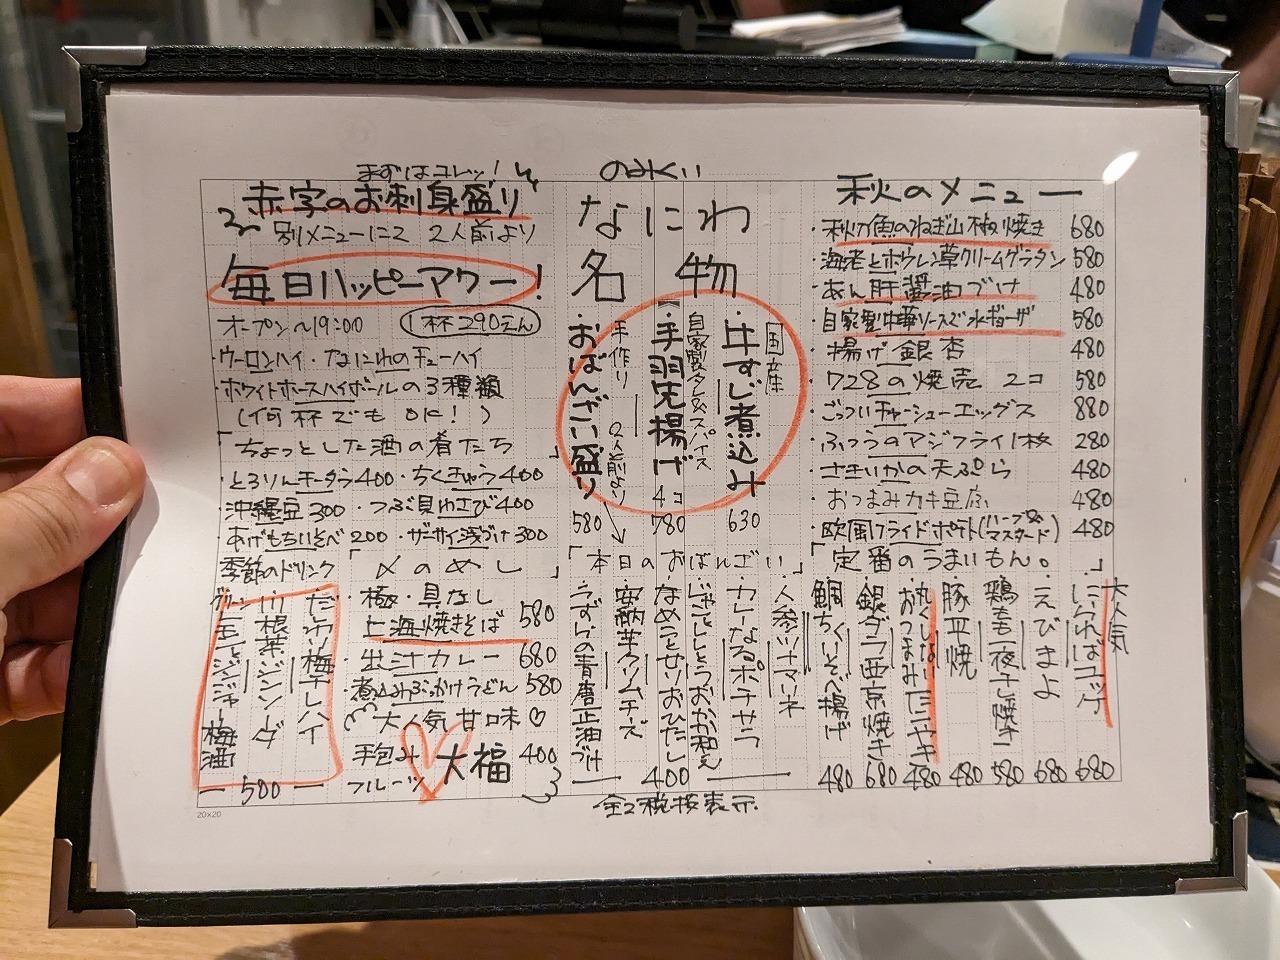 まずはコレッ!
赤字のお刺身盛り
別メニューにて 2人前より
毎日ハッピーアワー!
オープン〜19:00 1杯290えん
・ウーロンハイ・なにわのチューハイ
・ホワイトホースハイボールの3種類
(何杯でもOK!)
「ちょっとした酒の肴たち」
・とろりん モータラ400・ちくきゅう400
・沖縄豆300・つぶ貝わさび400
・あげもちいそべ200・ザーサイ浅づけ300
季節のドリンク
だるり梅干しハイ
川根茶ジンソーダ
ガリ玉とジンジャー梅酒
500
「〆のめし」
・極・具なし
上海焼きそば 580
・出汁カレー 680
・煮込みぶっかけうどん 580
大人気 甘味♡
手包み
フルーツ
大福 400
のみくい
なにわ
名物
国産
・牛すじ煮込み 630
自家製タレ&スパイス
・手羽先揚げ 4コ 780
手作り 2人前より
・おばんざい盛り 580
「本日のおばんざい」
・人参ツナマリネ
・カレーなるポテサラ
・じゃことししとうおかか和え
・なめことせりおひたし
・安納芋クリームチーズ
・うずらの青唐正油づけ
400
全て税抜表示
秋のメニュー
・秋刀魚のねぎ山椒焼き 680
・海老とホウレン草クリームグラタン 580
・あん肝醤油づけ 480
・自家製中華ソースで水ギョーザ 580
・揚げ銀杏 480
・728の焼売 2コ 580
・ごっついチャーシューエッグス 880
・ふつうのアジフライ1枚 280
・さきいかの天ぷら 480
・おつまみカキ豆腐 480
・欧風フライドポテト(ハーブ&マスタード) 480
「定番のうまいもん。」
大人気
・にんればユッケ 680
・えびまよ 680
・鶏もも一夜干し焼き 580
・豚平焼 480
・熱くしないおつまみにらやき 480
・銀ダラ西京焼き 680
・鯛ちくいそべ揚げ 480
20×20